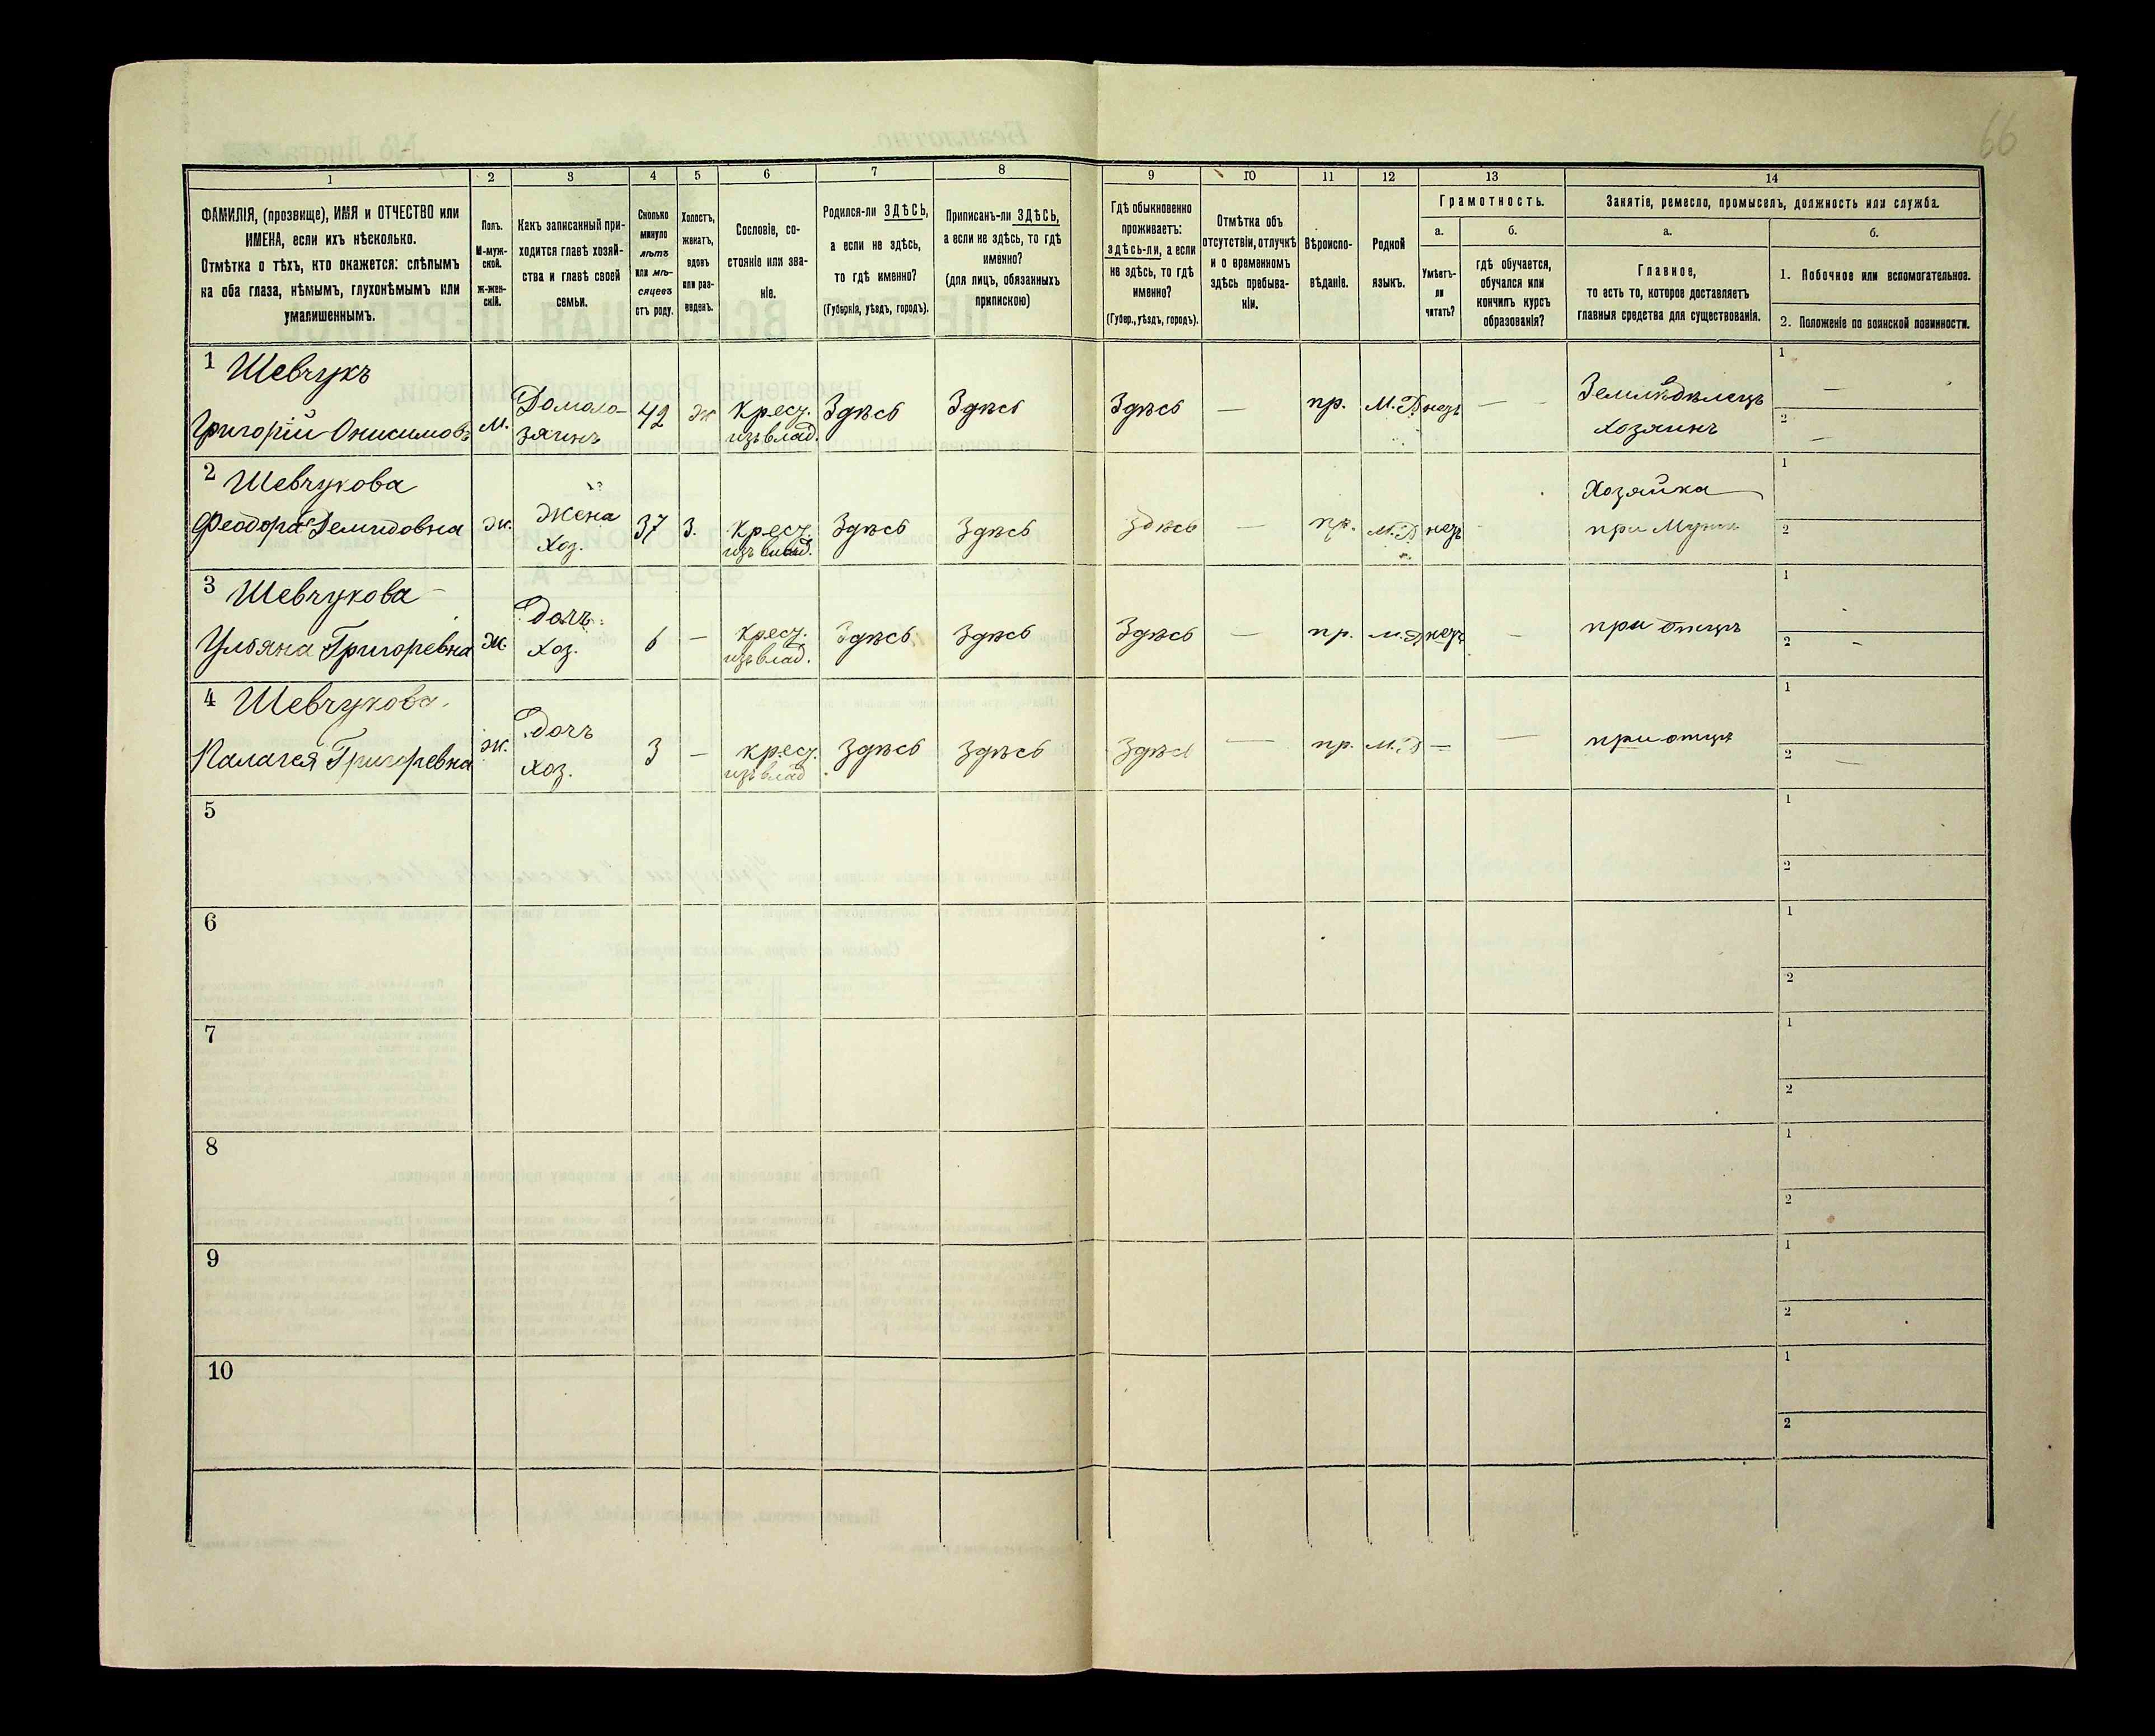 66
1 2 3 4 5 6 7 8 9 10 11 12 13 14
ФАМИЛІЯ, (прозвище), ИМЯ и ОТЧЕСТВО или
ИМЕНА, если ихъ нѣсколько.
Отмѣтка о тѣхъ, кто окажется: слѣпымъ
на оба глаза, нѣмымъ, глухонѣмымъ или
умалишеннымъ.
Полъ.
М-муж-
ской.
ж-жен-
скій.
Какъ записанный при-
ходится главѣ хозяй-
ства и главѣ своей
семьи.
Сколько
минуло
лѣтъ
или мѣ-
сяцевъ
отъ роду.
Холостъ,
женатъ,
вдовъ
или раз-
веденъ.
Сословіе, со-
стояніе или зва-
ніе.
Родился-ли ЗДѢСЬ,
а если не здѣсь,
то гдѣ именно?
(Губернія, уѣздъ, городъ).
Приписанъ-ли ЗДѢСЬ,
а если не здѣсь, то гдѣ
именно?
(для лицъ, обязанныхъ
припискою)
Гдѣ обыкновенно
проживаетъ:
здѣсь-ли, а если
не здѣсь, то гдѣ
именно?
(Губер., уѣздъ, городъ).
Отмѣтка объ
отсутствіи, отлучкѣ
и о временномъ
здѣсь пребыва-
ніи.
Вѣроиспо-
вѣданіе.
Родной
языкъ.
Грамотность.
а.
Умѣетъ-
ли
читать?
б.
гдѣ обучается,
обучался или
кончилъ курсъ
образованія?
Занятіе, ремесло, промыселъ, должность или служба.
а.
Главное,
то есть то, которое доставляетъ
главныя средства для существованія.
б.
1. Побочное или вспомогательное.
2. Положеніе по воинской повинности.
1 Шевчукъ
Григорій Онисимовъ
м.
Домохо-
зяинъ
42
ж
Крес.
изъ влад.
Здѣсь
Здѣсь
Здѣсь
—
пр.
М.Р
нетъ
—
Земледѣлецъ
Хозяинъ
1 —
2 —
2 Шевчукова
Феодора Демидовна
ж.
Жена
хоз.
37
з.
Крес.
изъ влад.
Здѣсь
Здѣсь
Здѣсь
—
пр.
М.Р
нетъ
Хозяйка
при Мужѣ
1
2
3 Шевчукова
Ульяна Григоревна
ж.
Дочь
хоз.
6
—
Крес.
изъ влад.
Здѣсь
Здѣсь
Здѣсь
—
пр.
М.Р
нетъ
—
при отцѣ
1
2 —
4 Шевчукова
Палагея Григоревна
ж.
Дочь
хоз.
3
—
крес.
изъ влад
Здѣсь
Здѣсь
Здѣсь
—
пр.
М.Р
—
—
при отцѣ
1
2 —
5
1
2
6
1
2
7
1
2
8
1
2
9
1
2
10
1
2